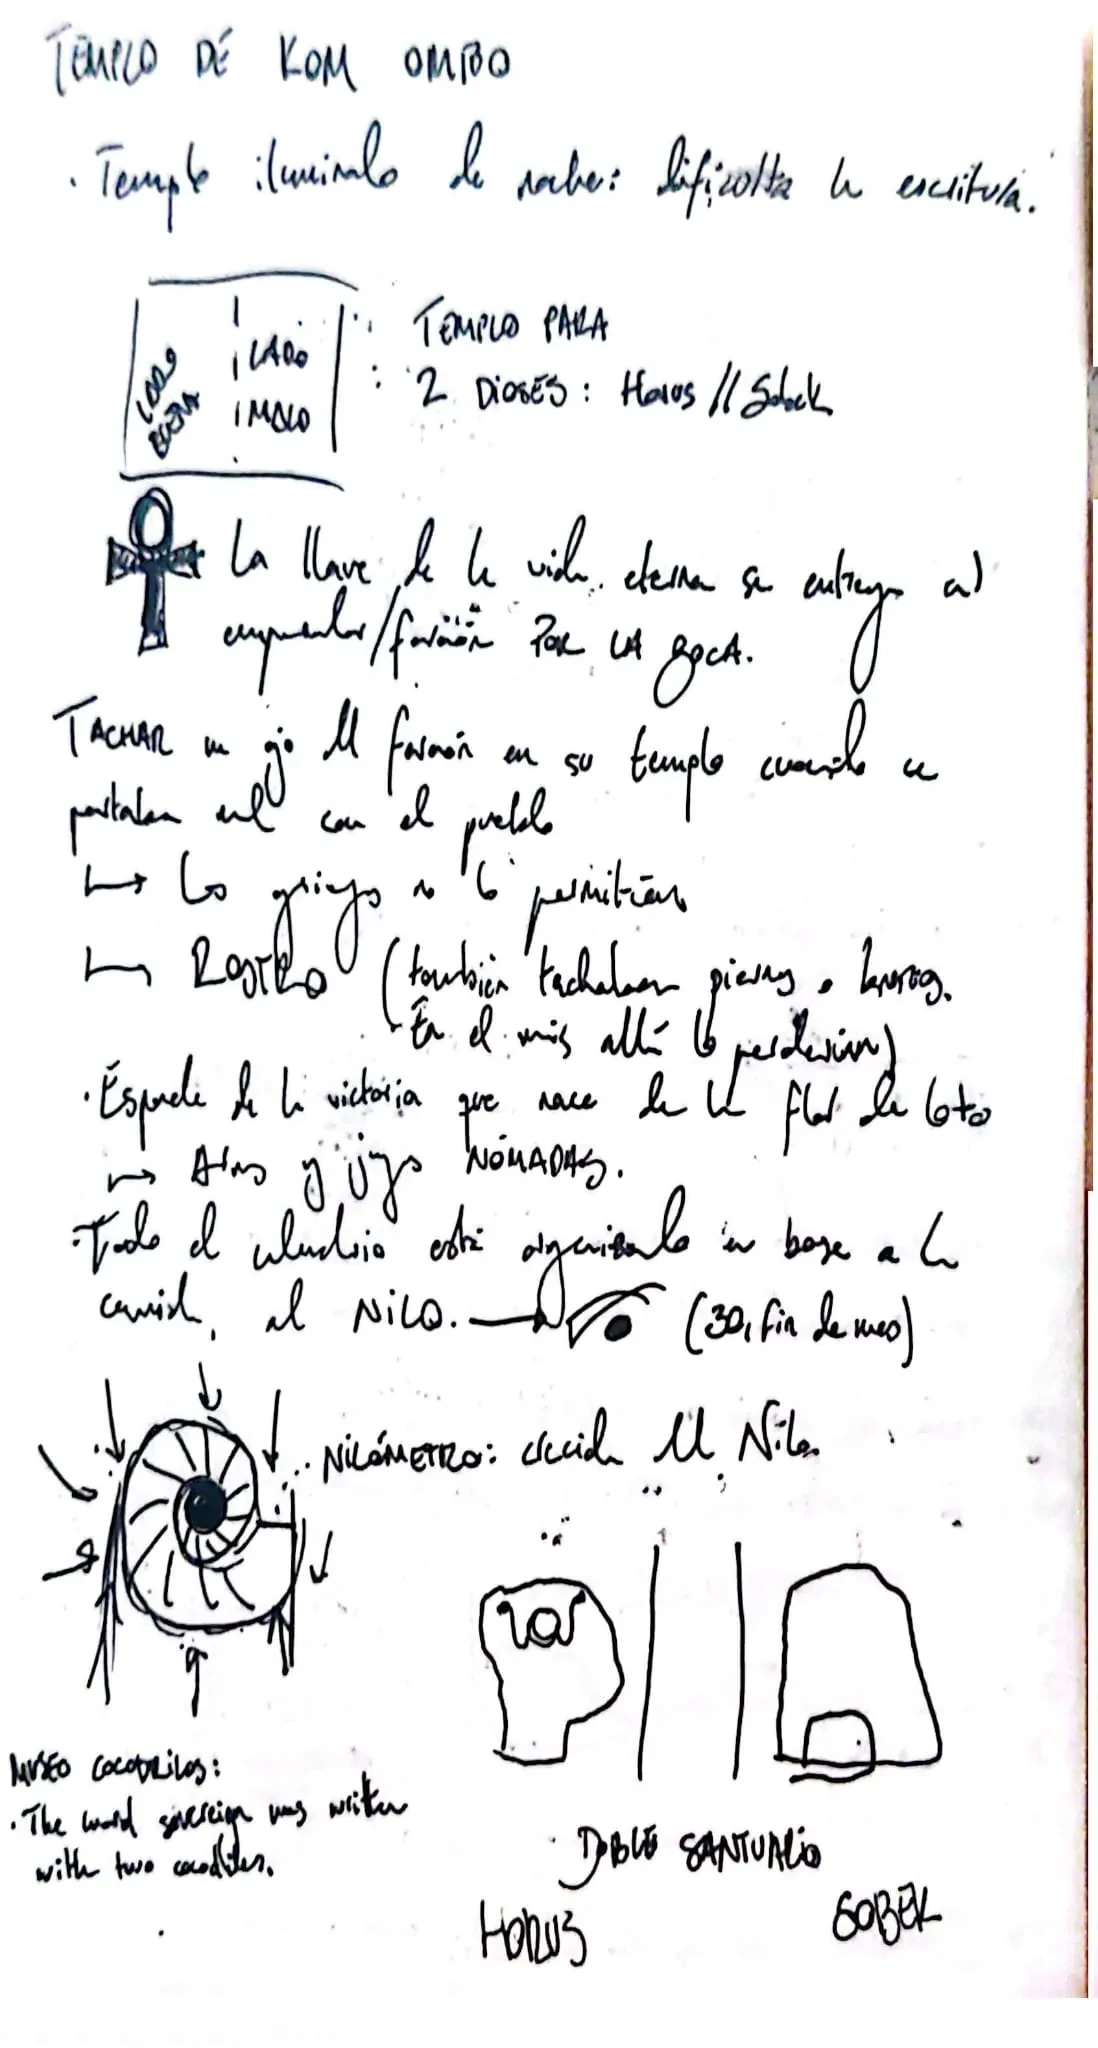 TEMPLO DE KOM OMBO
· Templo iluminado de noche: dificulta la escritura.
LADO BUENO
LADO MALO
TEMPLO PARA
2 DIOSES: Horus // Sobek
La llave de la vida eterna se entrega al
emperador/faraón POR LA BOCA.
TACHAR un ojo del faraón en su templo cuando se
portaban mal con el pueblo
↳ Los griegos no lo permitían
↳ ROSTRO (también tachaban piernas o brazos.
En el más allá lo perderían)
· Espada de la victoria que nace de la flor de loto
↳ y NÓMADAS.
· Todo el calendario está organizado en base a la
crecida del NILO. → (30, fin de mes)
NILÓMETRO: crecida del Nilo
MUSEO COCODRILOS:
· The word sovereign was written
with two crocodiles.
DOBLE SANTUARIO
HORUS
SOBEK